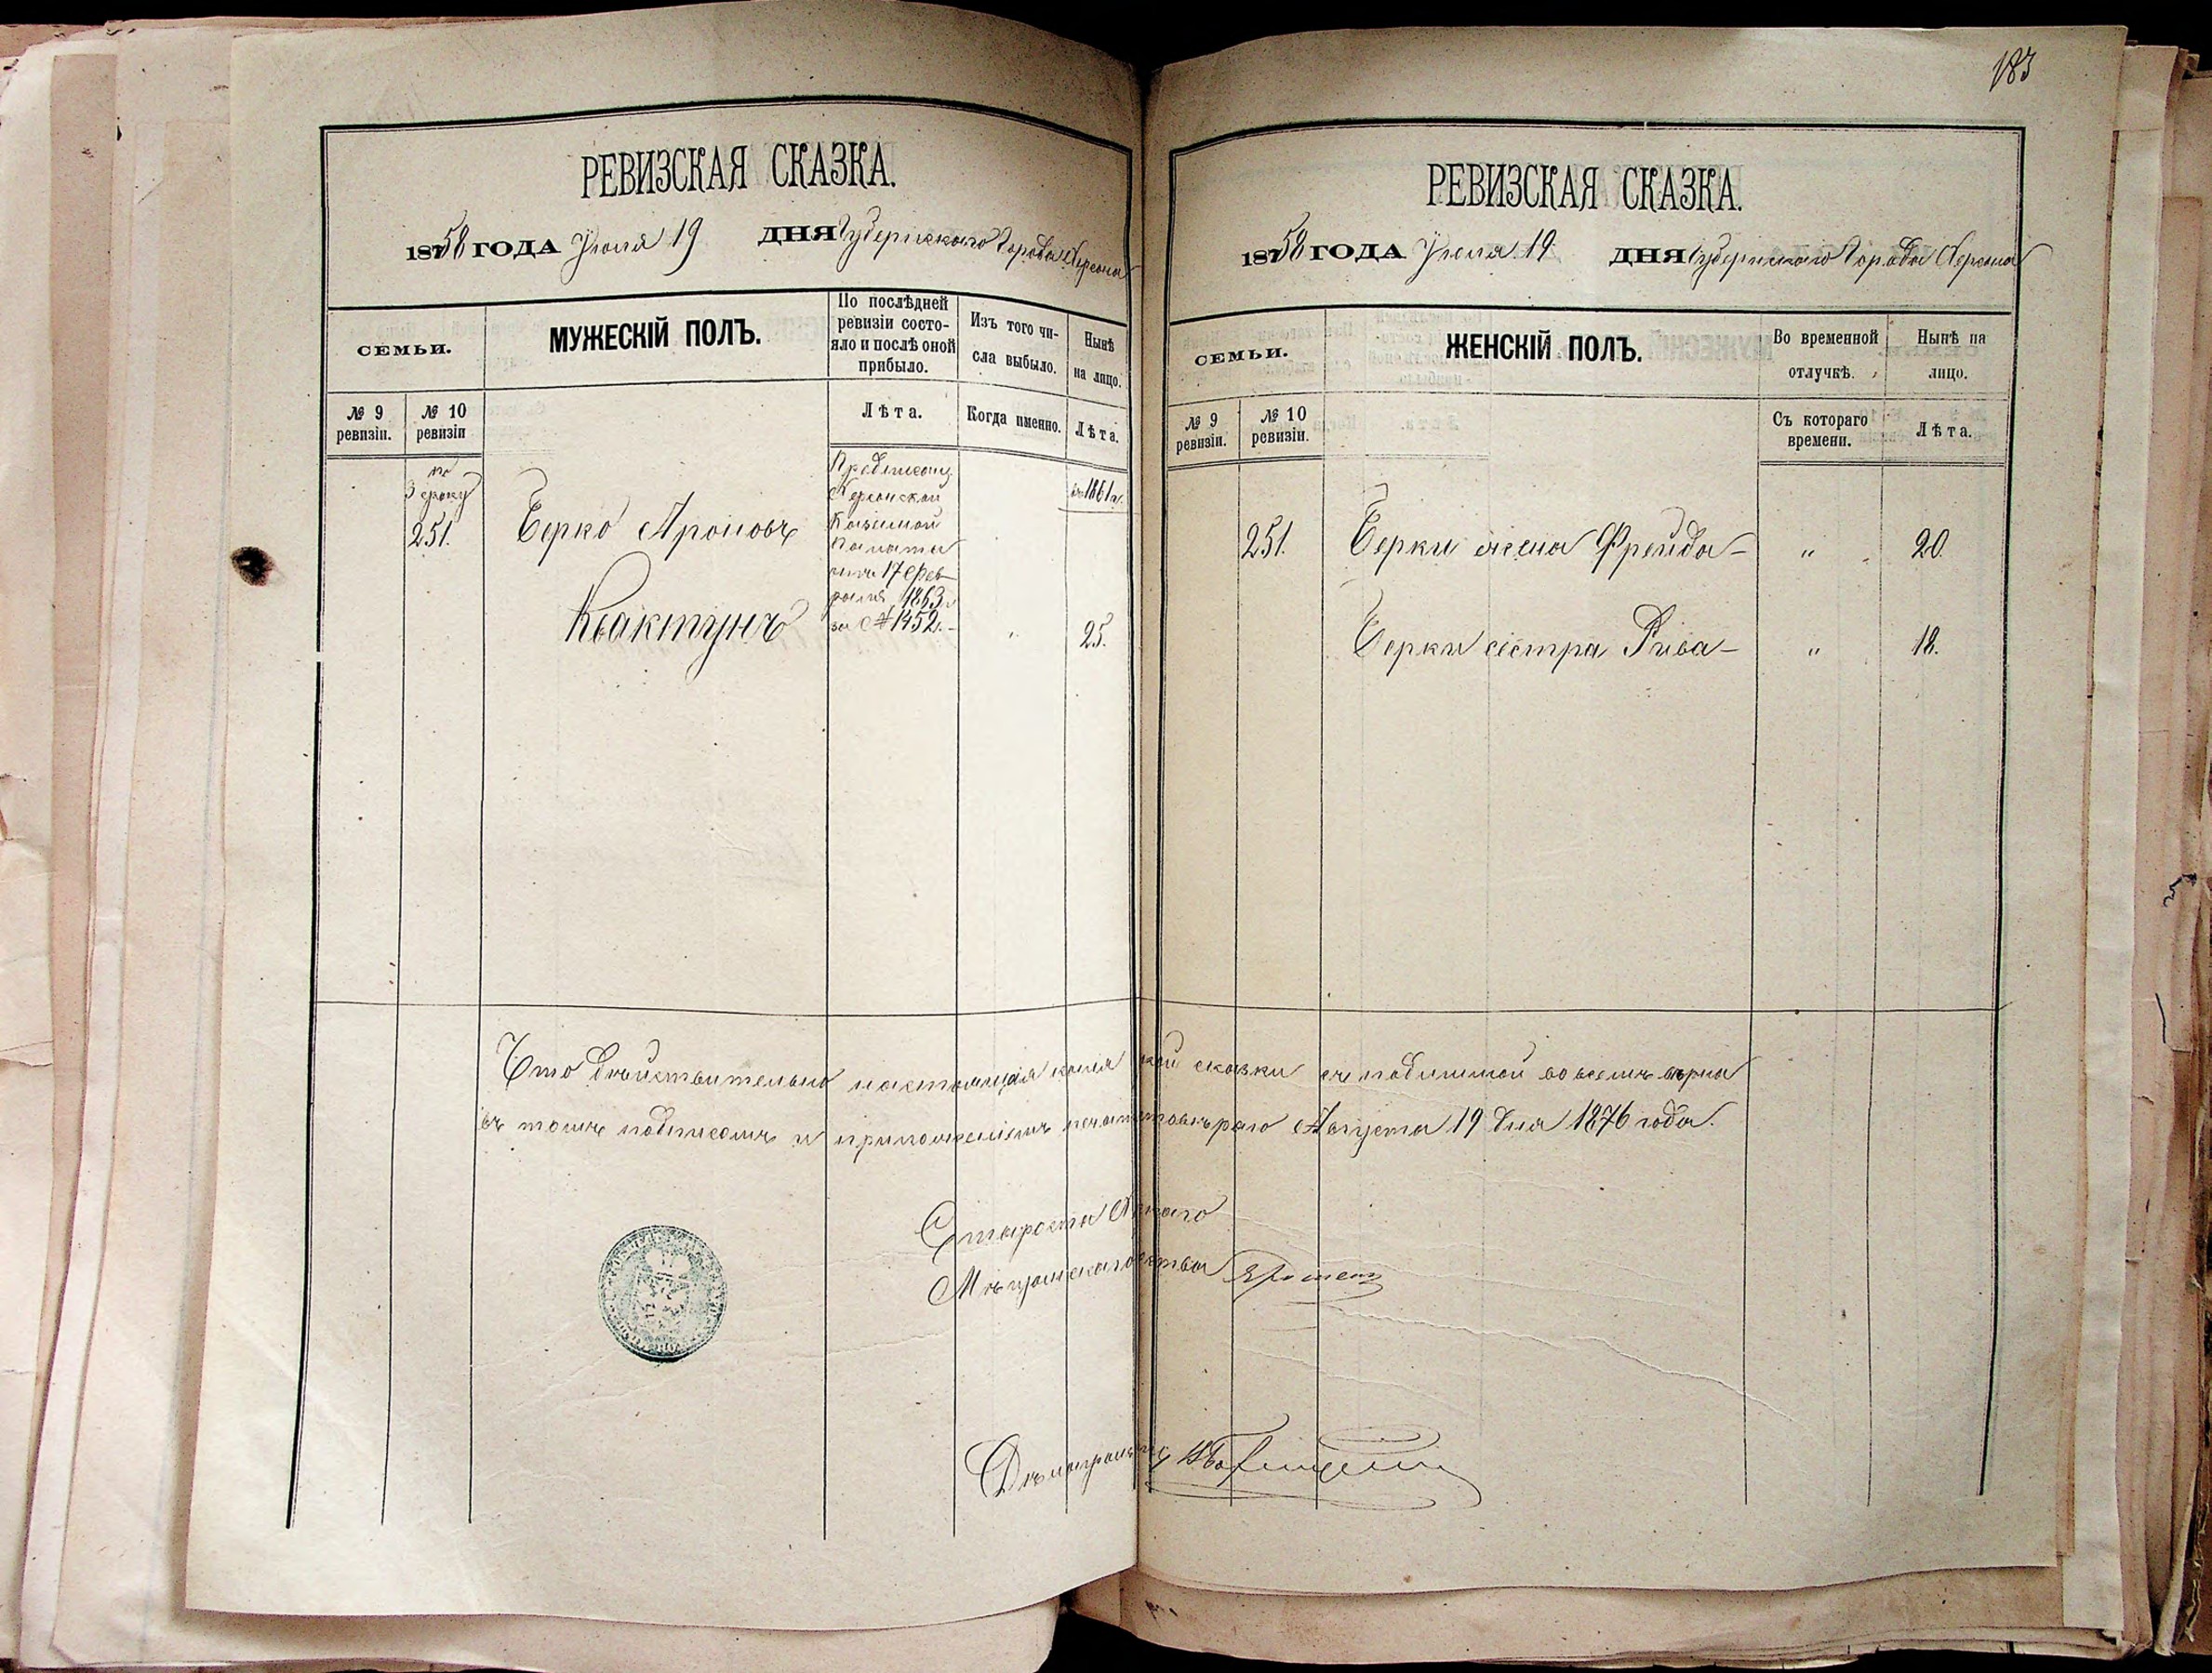 183
РЕВИЗСКАЯ СКАЗКА.
1858 ГОДА Іюля 19 ДНЯ Губернскаго Города Херсона
СЕМЬИ.
МУЖЕСКІЙ ПОЛЪ.
По послѣдней
ревизіи состо-
яло и послѣ оной
прибыло.
Изъ того чи-
сла выбыло.
Нынѣ
на лицо.
№ 9
ревизіи.
№ 10
ревизіи
Лѣта.
Когда именно.
Лѣта.
по
3 сроку
251.
Берко Ароновъ
Квактунъ
Предписан.
Херсонской
Казенной
Палаты
отъ 17 Фев-
раля 1863 г.
за № 1452.
въ 1861 г.
"
25.
РЕВИЗСКАЯ СКАЗКА.
1858 ГОДА Іюля 19 ДНЯ Губернскаго Города Херсона
СЕМЬИ.
ЖЕНСКІЙ ПОЛЪ.
Во временной
отлучкѣ.
Нынѣ на
лицо.
№ 9
ревизіи.
№ 10
ревизіи.
Съ котораго
времени.
Лѣта.
251. Берки жена Фрейда - " 20.
Берки сестра Рива - " 18.
Что дѣйствительно настоящая копія сказки съ подлинной во всемъ вѣрна
въ томъ подписомъ и приложеніемъ печати Августа 19 дня 1876 года.
Староста
Мѣщанскаго